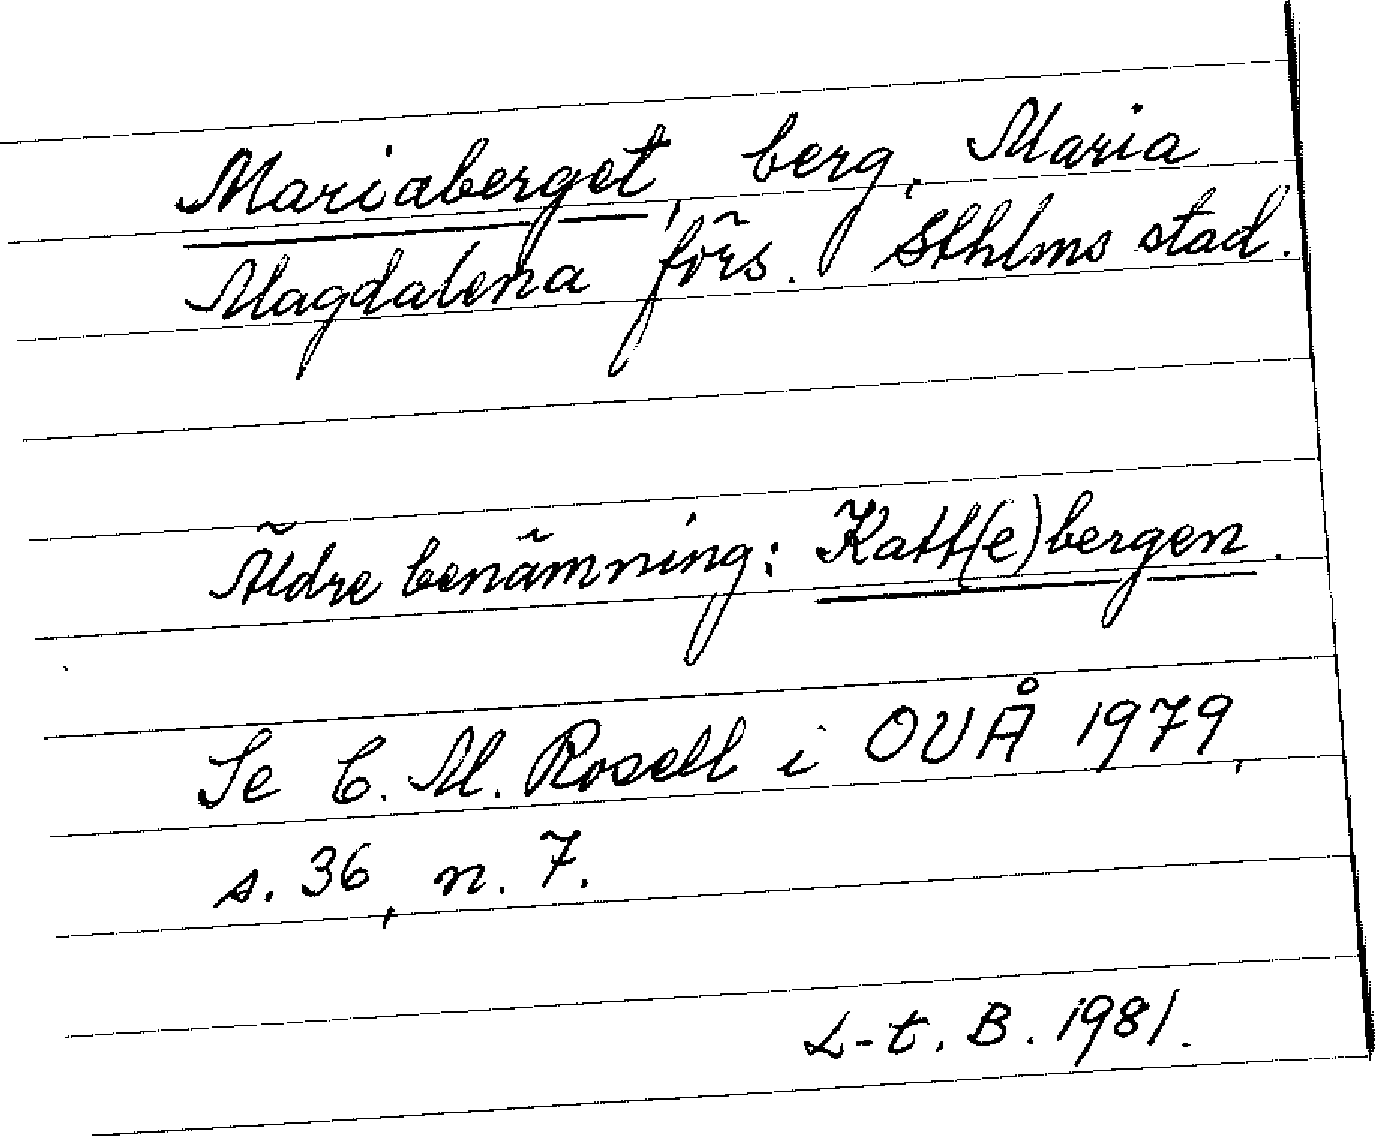 Mariaberget, berg, Maria
Magdalena förs. Sthlms stad.
Äldre benämning: Katt(e)bergen.
Se C. M. Rosell i OUÅ 1979,
s. 36, n. 7.
L-t. B. 1981.